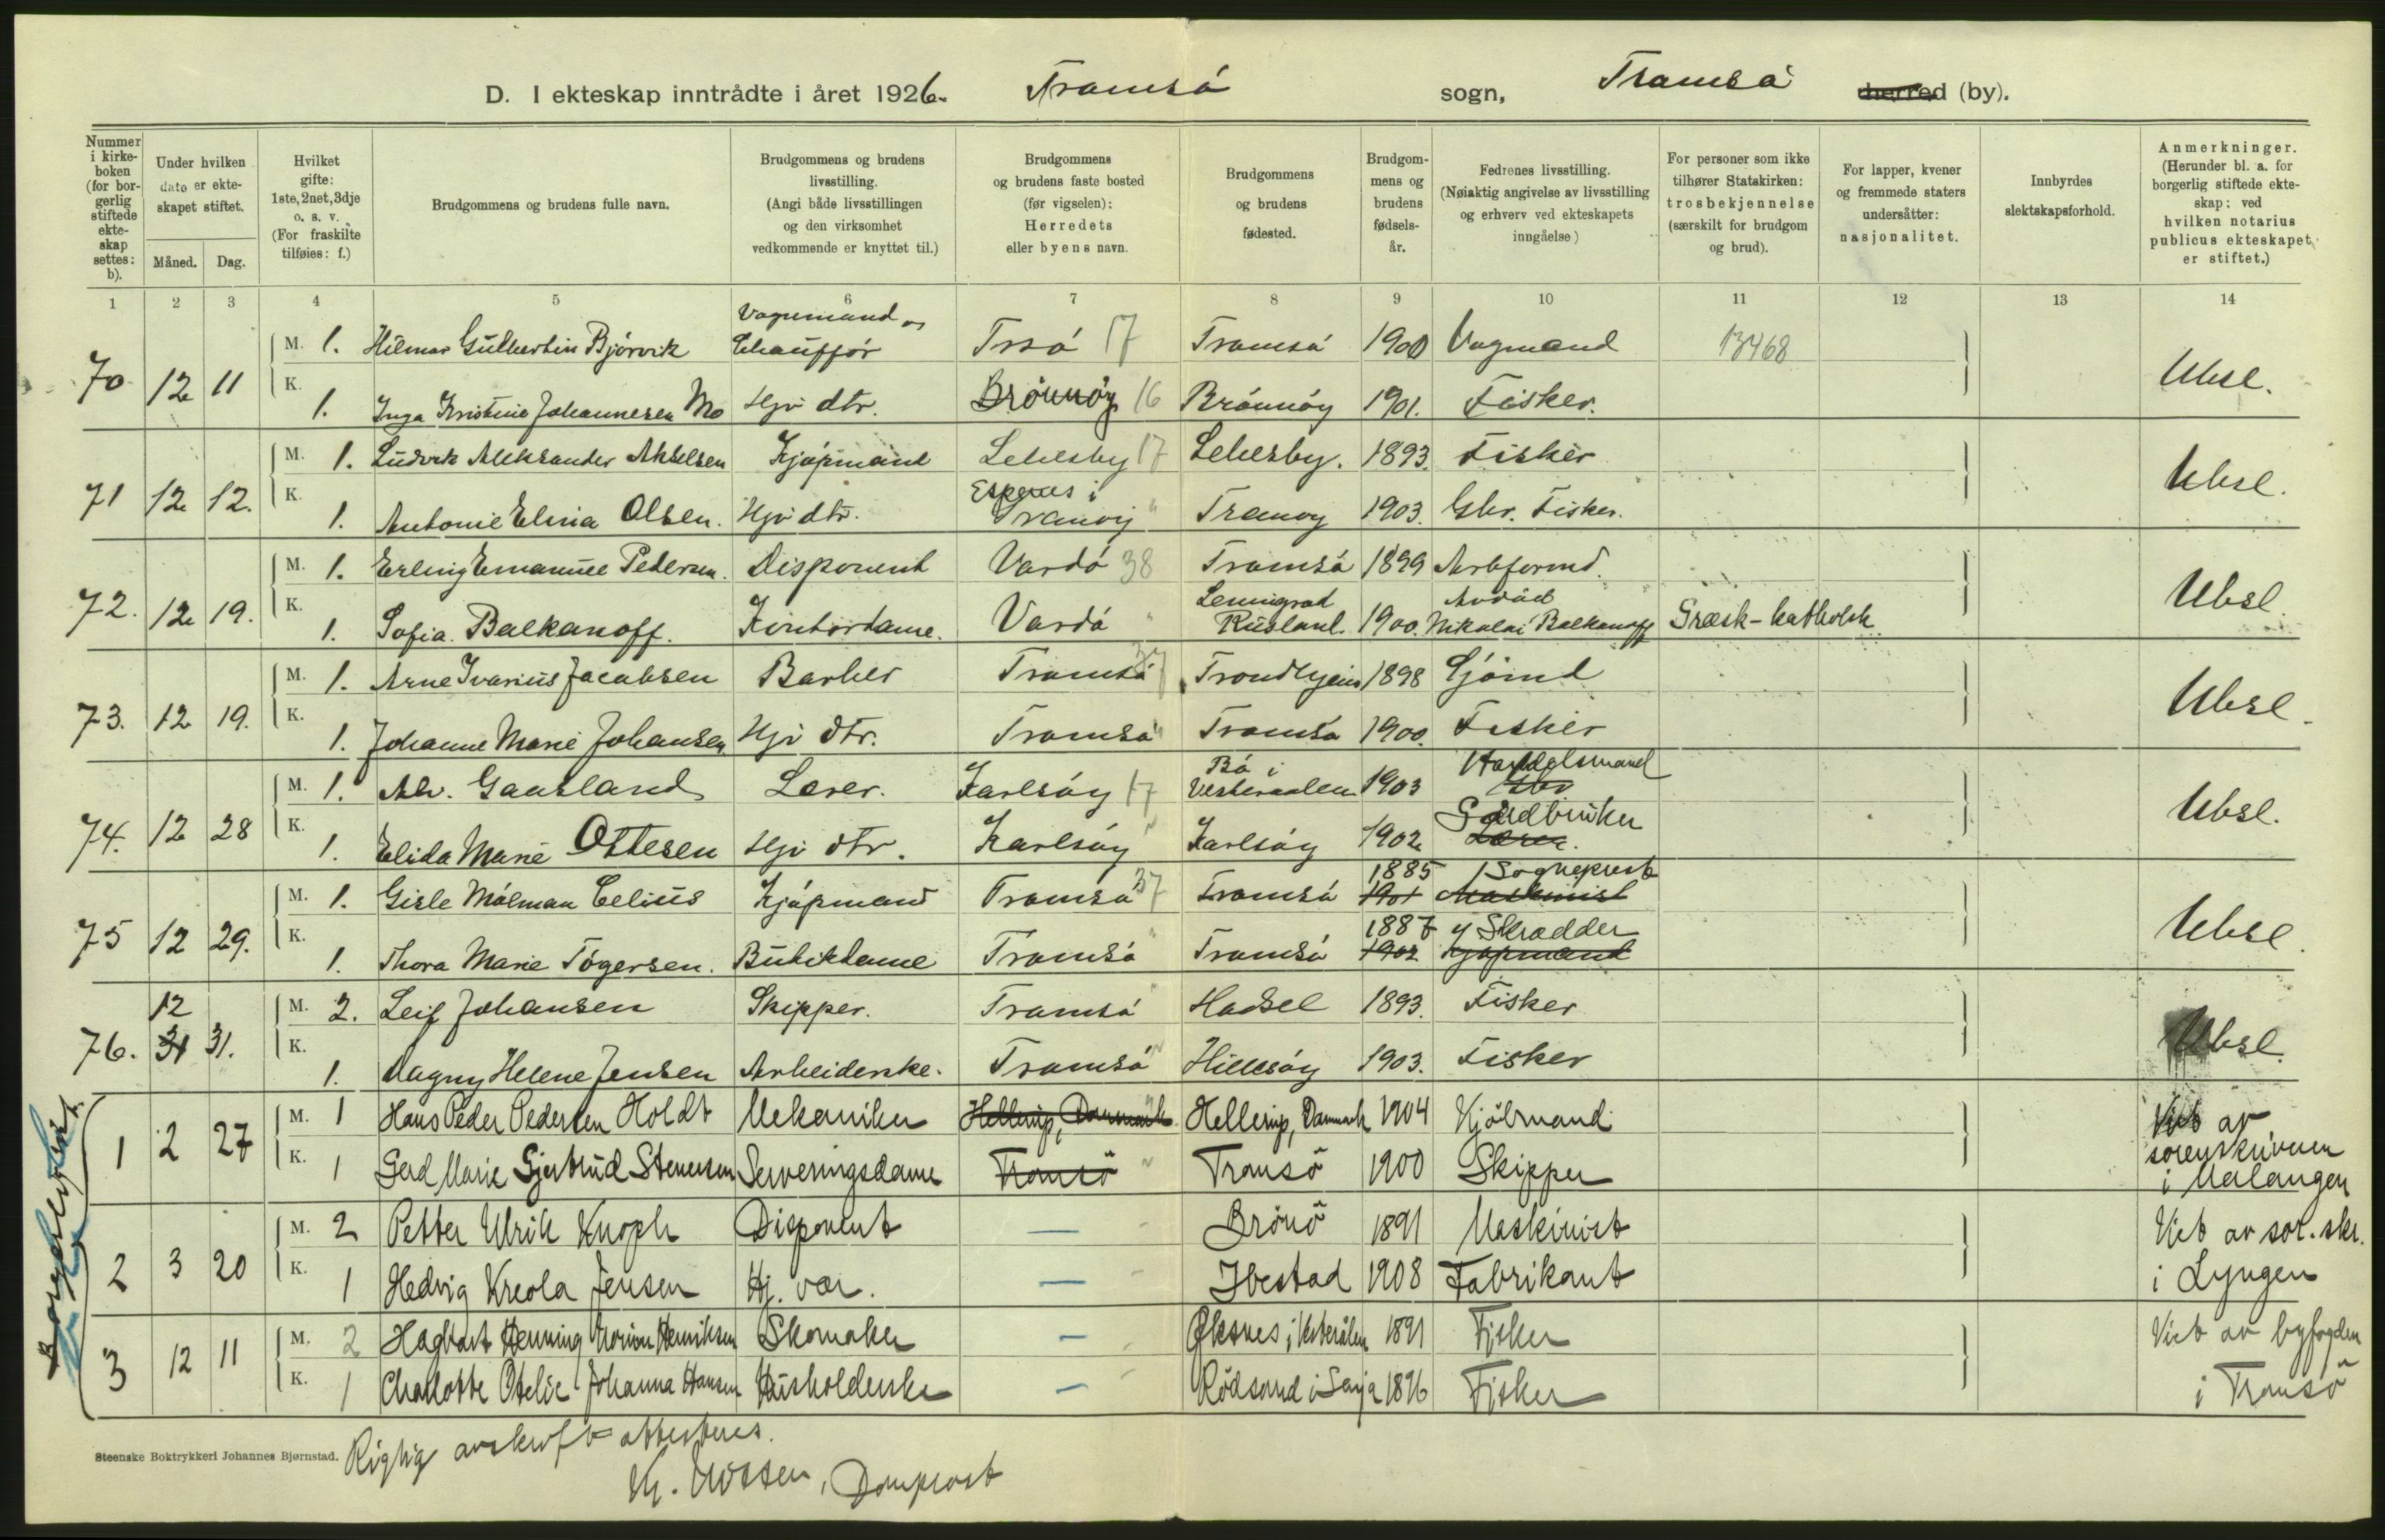 D. I ekteskap inntrådte i året 1926. Tromsö sogn, Tromsö herred (by).
Nummer i kirkeboken (for borgerlig stiftede ekteskap settes: b).
Under hvilken dato er ekteskapet stiftet.
Måned. Dag.
Hvilket gifte: 1ste, 2net, 3dje o. s. v. (For fraskilte tilføies: f.)
Brudgommens og brudens fulle navn.
Brudgommens og brudens livsstilling. (Angi både livsstillingen og den virksomhet vedkommende er knyttet til.)
Brudgommens og brudens faste bosted (før vigselen): Herredets eller byens navn.
Brudgommens og brudens fødested.
Brudgommens og brudens fødselsår.
Fedrenes livsstilling. (Nøiaktig angivelse av livsstilling og erhverv ved ekteskapets inngåelse)
For personer som ikke tilhører Statskirken: trosbekjennelse (særskilt for brudgom og brud).
For lapper, kvener og fremmede staters undersåtter: nasjonalitet.
Innbyrdes slektskapsforhold.
Anmerkninger. (Herunder bl. a. for borgerlig stiftede ekteskap: ved hvilken notarius publicus ekteskapet er stiftet.)
1 2 3 4 5 6 7 8 9 10 11 12 13 14
70 12 11 M. 1. Hilmar Gulbertin Bjórvik Vognmand og Chaufför Trsö 17 Tromsö 1900 Vogmand 13468 Ubsl.
K. 1. Inga Kristine Johannesen Mo Hjv dtr. Brönnöy 16 Brönnöy 1901. Fisker.
71 12 12. M. 1. Ludvik Aleksander Akselsen Kjöpmand Lebesby 17 Lebesby. 1893. Fisker Ubsl.
K. 1. Antonie Elina Olsen. Hjv dtr. Espenes i Tranöy " Tranoy 1903. Gbr. Fisker.
72. 12 19. M. 1. Erling Emanuel Pedersen. Disponent Vardö 38 Tromsö 1899 Arbformd. Ubsl.
K. 1. Sofia Balkanoff. Kontordame. Vardö " Leningrad Rusland. 1900. Avdöd Nikolai Balkanoff Græsk-katholsk
73. 12 19. M. 1. Arne Ivarius Jacobsen Barber Tromsö 37 Trondhjem 1898 Sjömd Ubsl.
K. 1. Johanne Marie Johansen Hjv dtr. Tromsö " Tromsö 1900. Fisker
74. 12 28 M. 1. Alv. Gausland Lærer. Karlsöy 17 Bö i Vesteraalen 1903 Handelsmand Ubsl.
K. 1. Elida Marie Ottesen Hjv dtr. Karlsöy " Karlsöy 1902 Gardbruker Lærer.
75 12 29. M. 1. Gisle Mólman Celius Kjöpmand Tromsö 37 Tromsö 1885 1901 Sogneprest Maskinist Ubsl.
K. 1. Thora Marie Tögersen. Butikdame Tromsö " Tromsö 1887 1902 Skrædder Kjöpmand
76. 12 31 31. M. 2. Leif Johansen Skipper. Tromsö " Hadsel 1893. Fisker Ubsl.
K. 1. Dagny Helene Jensen Arbeiderske. Tromsö " Hillesöy 1903. Fisker
Borgerlig viet.
1 2 27 M. 1 Hans Peder Pedersen Holdt Mekaniker Hellerup, Danmark Hellerup, Danmark 1904 Kjölmand Viet av sorenskriveren i Malangen
K. 1 Gerd Marie Gjertrud Stenersen Serveringsdame Tromsö " Tromsö 1900 Skipper
2 3 20 M. 2 Petter Ulrik Knoph Disponent — Brönö 1891 Maskinist Viet av sor. skr. i Lyngen
K. 1 Hedvig Kreola Jensen Hj. vær. — Ibestad 1908 Fabrikant
3 12 11 M. 2 Hagbart Henning Henriksen Skomaker — Öksnes i Vesterålen 1891 Fisker Viet av byfogden i Tromsö
K. 1 Charlotte Otelie Johanna Hansen Husholderske — Rödsand i Senja 1896 Fisker
Steenske Boktrykkeri Johannes Bjørnstad.
Rigtig avskrift attesteres.
Kr. Nissen, Domprost